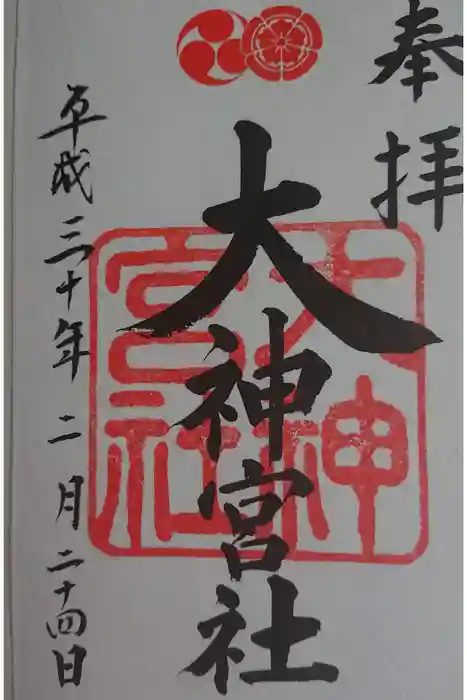 奉拝
大神宮社
大神宮社
平成三十年二月二十四日